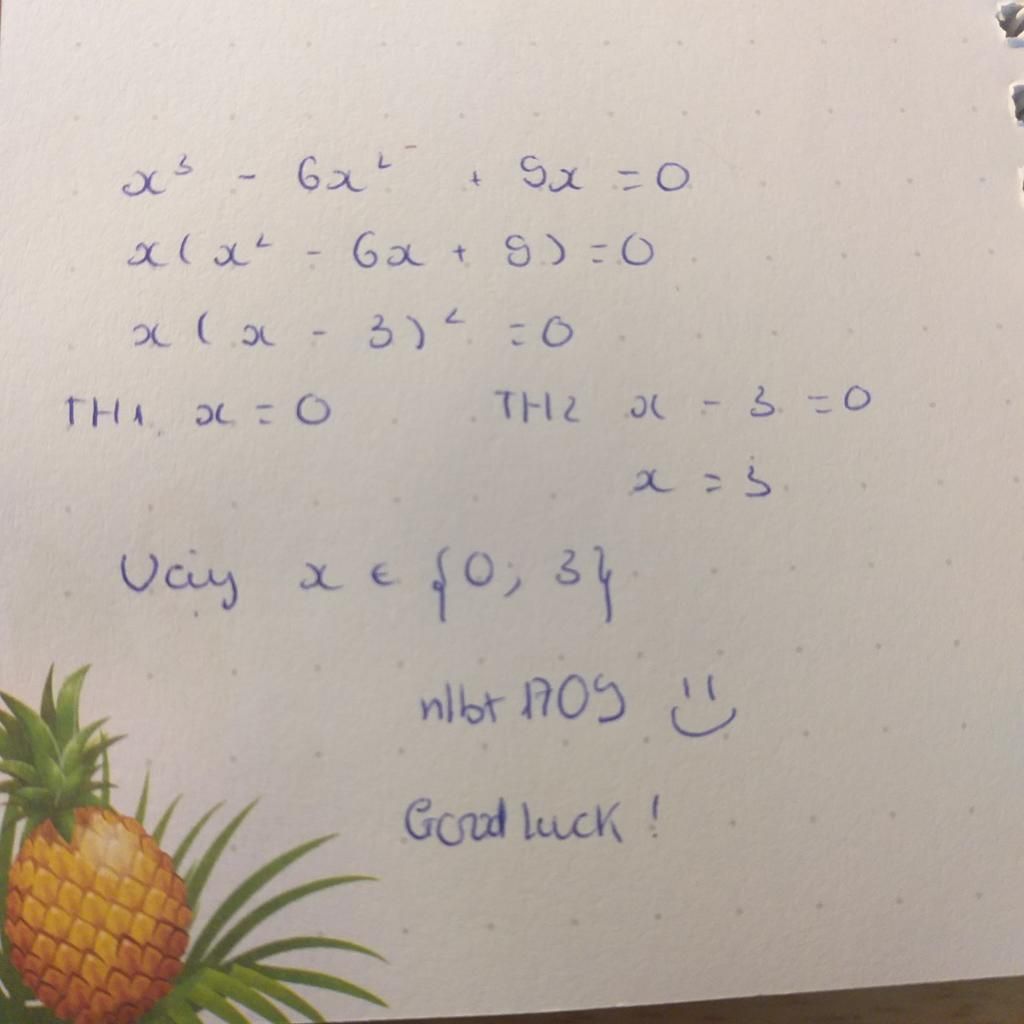 x³ - 6x² + 9x = 0
x(x² - 6x + 9) = 0
x(x - 3)² = 0
TH1 x = 0 TH2 x - 3 = 0
x = 3
Vậy x ∈ {0; 3}
nlbt1709 :)
Good luck !